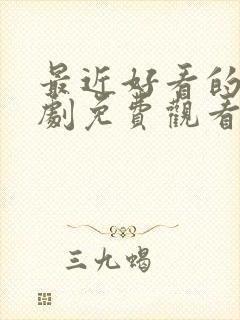 最近好看的
劇免費觀看
三九蝎